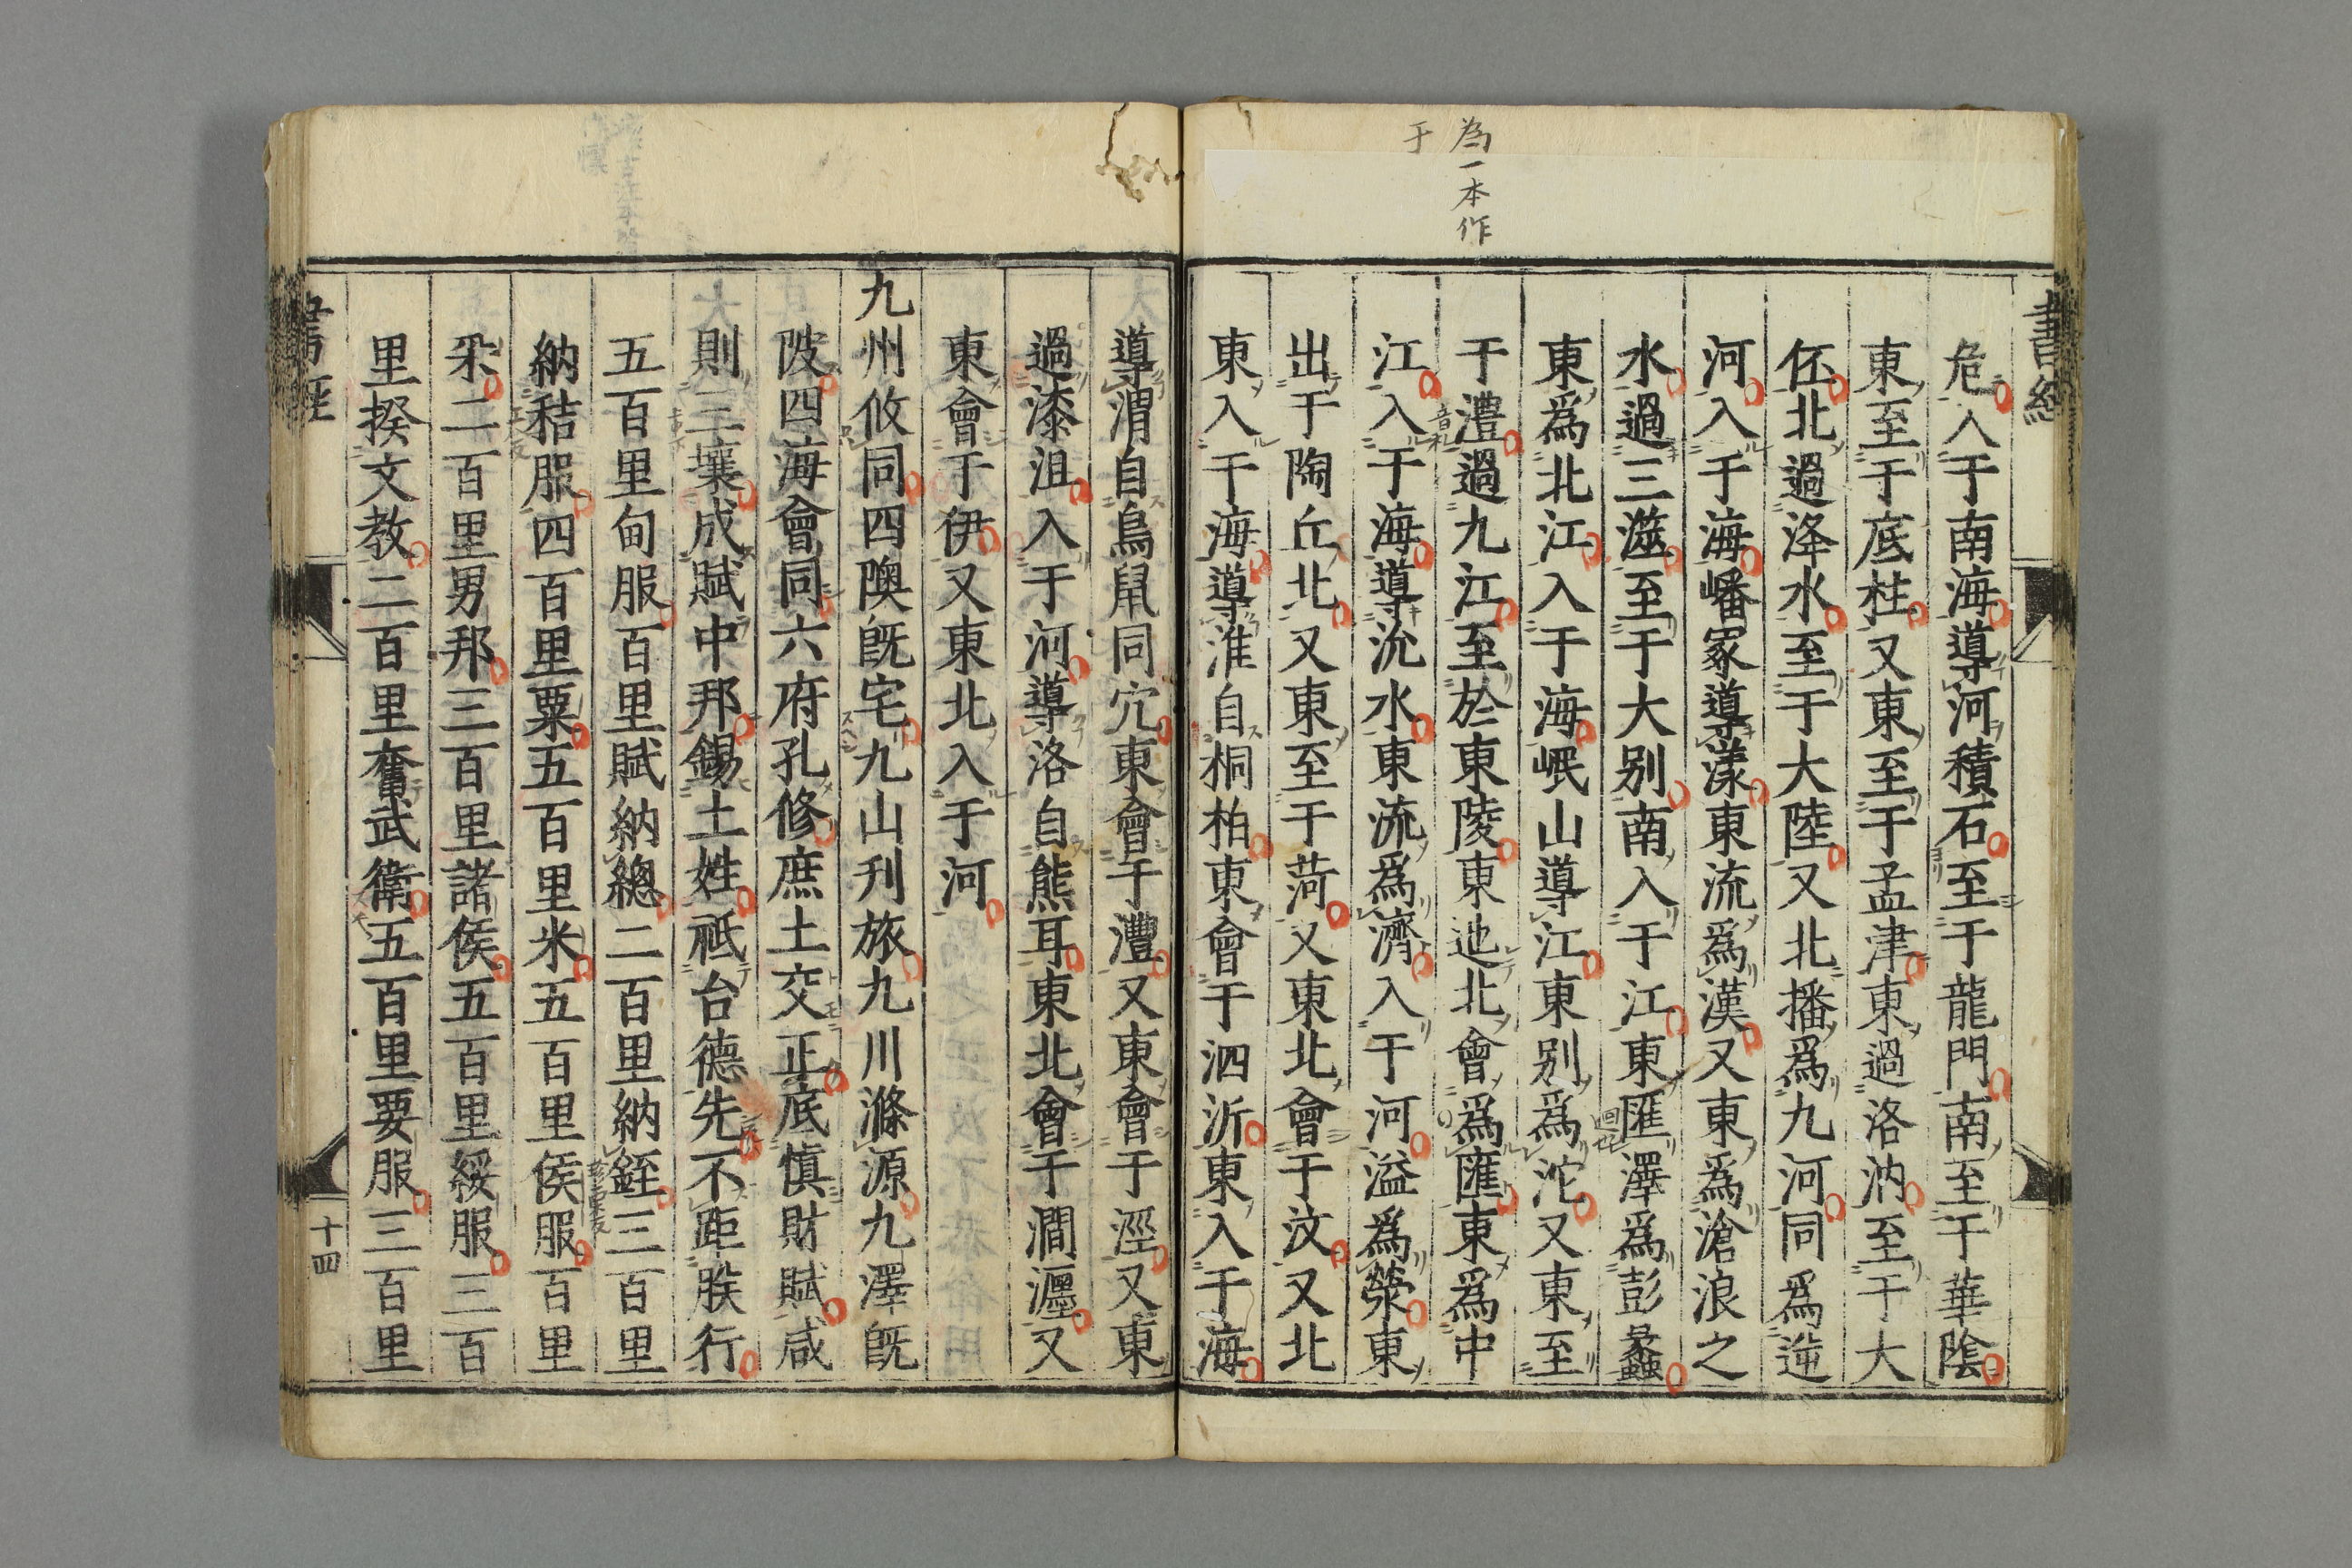 為一本作
于
書經
危入于南海導河積石至于龍門南至于華陰
東至于底柱又東至于孟津東過洛汭至于大
伾北過洚水至于大陸又北播爲九河同爲逆
河入于海嶓冢導漾東流爲漢又東爲滄浪之
水過三澨至于大别南入于江東匯澤爲彭蠡
東爲北江入于海岷山導江東别爲沱又東至
于澧過九江至於東陵東迆北會爲匯東爲中
江入于海導沇水東流爲濟入于河溢爲滎東
出于陶丘北又東至于菏又東北會于汶又北
東入于海導淮自桐柏東會于泗沂東入于海
導渭自鳥鼠同穴東會于灃又東會于涇又東
過漆沮入于河導洛自熊耳東北會于澗瀍又
東會于伊又東北入于河
九州攸同四隩旣宅九山刋旅九川滌源九澤旣
陂四海會同六府孔修庶土交正底慎財賦咸
則三壤成賦中邦錫土姓祗台德先不距朕行
五百里甸服百里賦納總二百里納銍三百里
納秸服四百里粟五百里米五百里侯服百里
采二百里男邦三百里諸侯五百里綏服三百
里揆文教二百里奮武衛五百里要服三百里
書經
十四